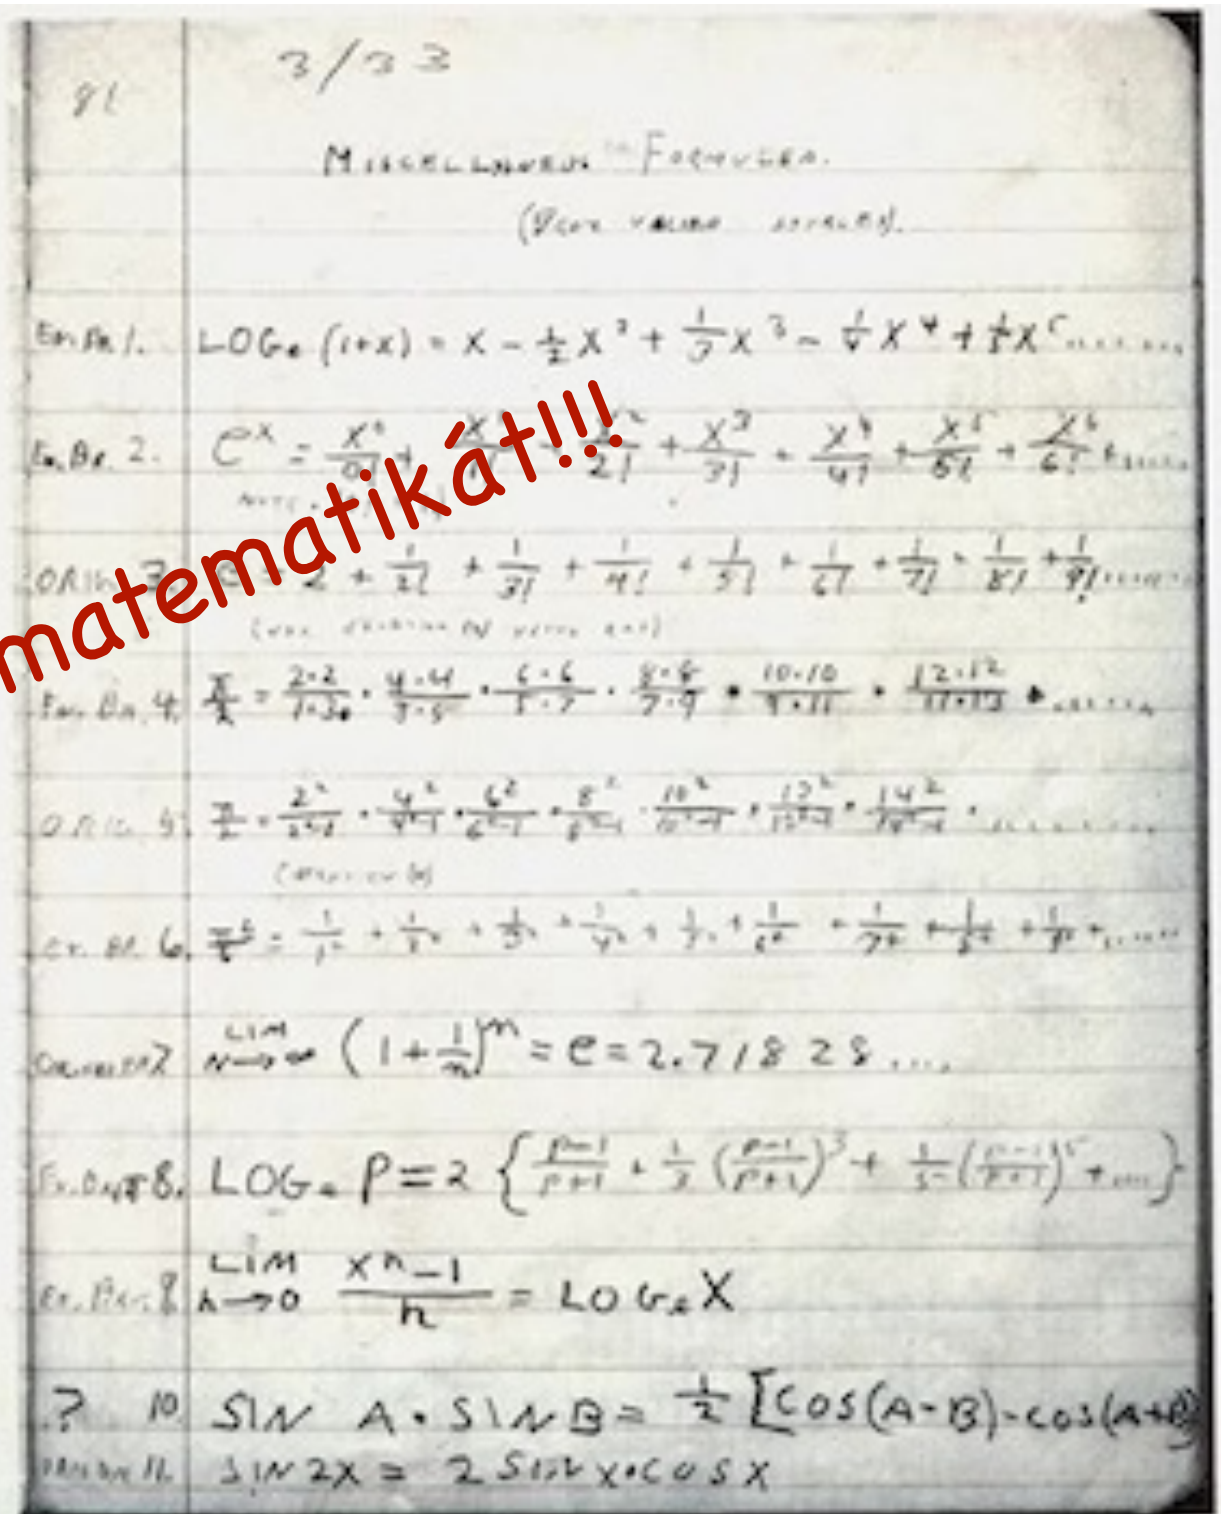 3/33
81
MISCELLANEOUS FORMULEA.
1. LOGₑ (1+x) = x - ½x² + ⅓x³ - ¼x⁴ + ⅕x⁵.......
Ex. Br. 2. eˣ = x⁰/0! + x/1! + x²/2! + x³/3! + x⁴/4! + x⁵/5! + x⁶/6! +......
matematikát!!!
ORIG. 3. e = 2 + 1/2! + 1/3! + 1/4! + 1/5! + 1/6! + 1/7! + 1/8! + 1/9!.......
Ex. Br. 4. π/2 = 2·2/1·3 · 4·4/3·5 · 6·6/5·7 · 8·8/7·9 · 10·10/9·11 · 12·12/11·13 · .......
ORIG. 5. π/2 = 2²/2²-1 · 4²/4²-1 · 6²/6²-1 · 8²/8²-1 · 10²/10²-1 · 12²/12²-1 · 14²/14²-1 · .........
Ex. Br. 6. = 1/1² + 1/2² + 1/3² + 1/4² + 1/5² + 1/6² + 1/7² + 1/8² + 1/9² +......
7 LIM n→∞ (1+1/n)ⁿ = e = 2.71828....
8. LOGₑ P = 2 { P-1/P+1 + 1/3 (P-1/P+1)³ + 1/5 (P-1/P+1)⁵ +.... }
Ex. Br. 8. LIM h→0 xʰ-1/h = LOGₑX
? 10 SIN A · SIN B = ½ [COS(A-B)-COS(A+B)]
11. SIN 2X = 2 SIN X·COS X